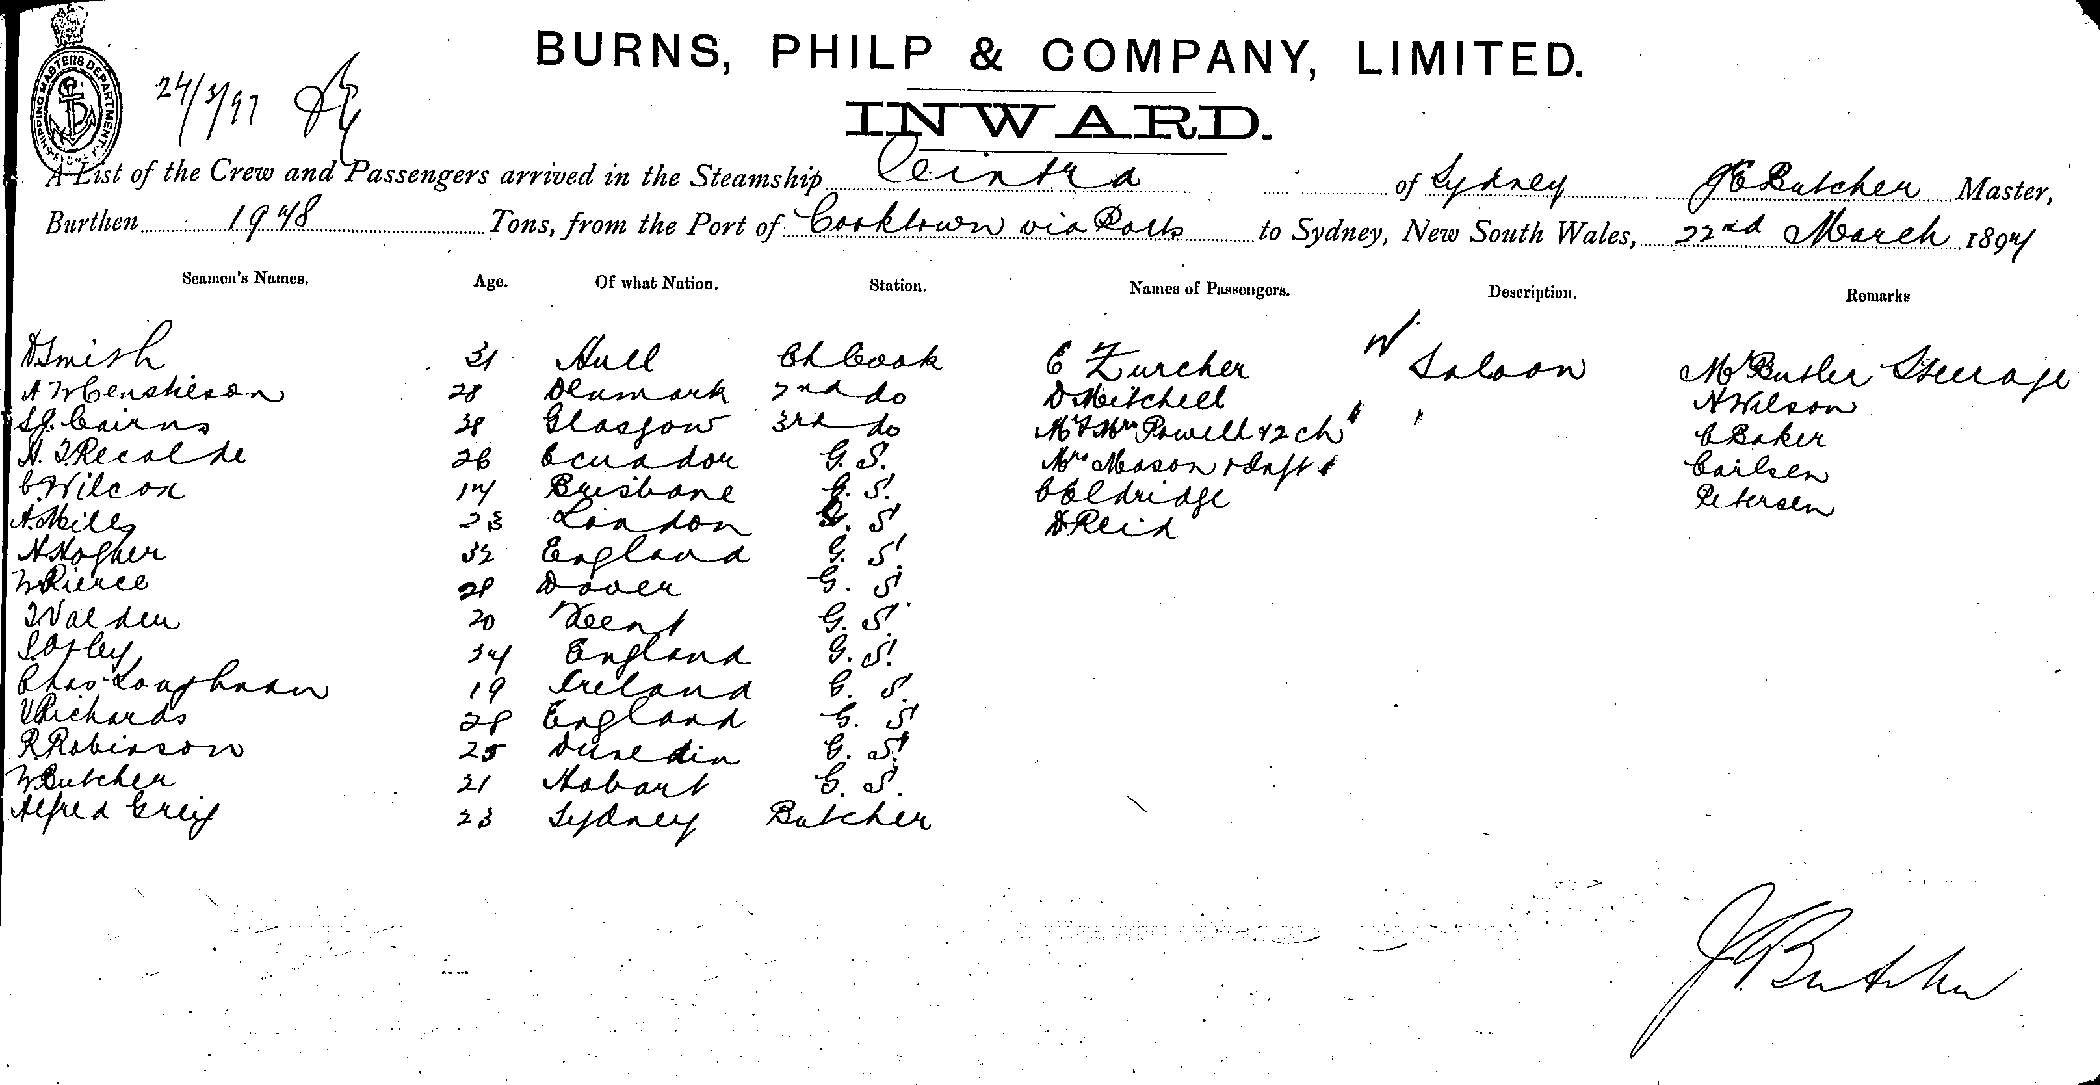 24/3/97
BURNS, PHILP & COMPANY, LIMITED.
INWARD.
A List of the Crew and Passengers arrived in the Steamship Cintra of Sydney J E Butcher Master,
Burthen 1978 Tons, from the Port of Cooktown via Ports to Sydney, New South Wales, 22nd March 1897
Seamen's Names. Age. Of what Nation. Station. Names of Passengers. Description. Remarks
D Smith 31 Hull Ch Cook E Zurcher Saloon Mr Butler Steerage
28 Denmark 2nd do D Mitchell N Wilson
S J. Cairns 38 Glasgow 3rd do Mr & Mrs Powell & 2 ch " " C Baker
26 Ecuador G. S. Mrs Mason & Inft Carlsen
C Wilcox 17 Brisbane G. S. C Eldridge Petersen
A. Mills 23 London G. S. D Reid
32 England G. S.
W Pierce 28 Dover G. S.
20 Kent G. S.
34 England G. S.
Chas Loughnan 19 Ireland G. S.
V Richards 28 England G. S.
R Robinson 25 Dunedin G. S.
W Butcher 21 Hobart G. S.
Alfred Greig 23 Sydney Butcher
J E Butcher